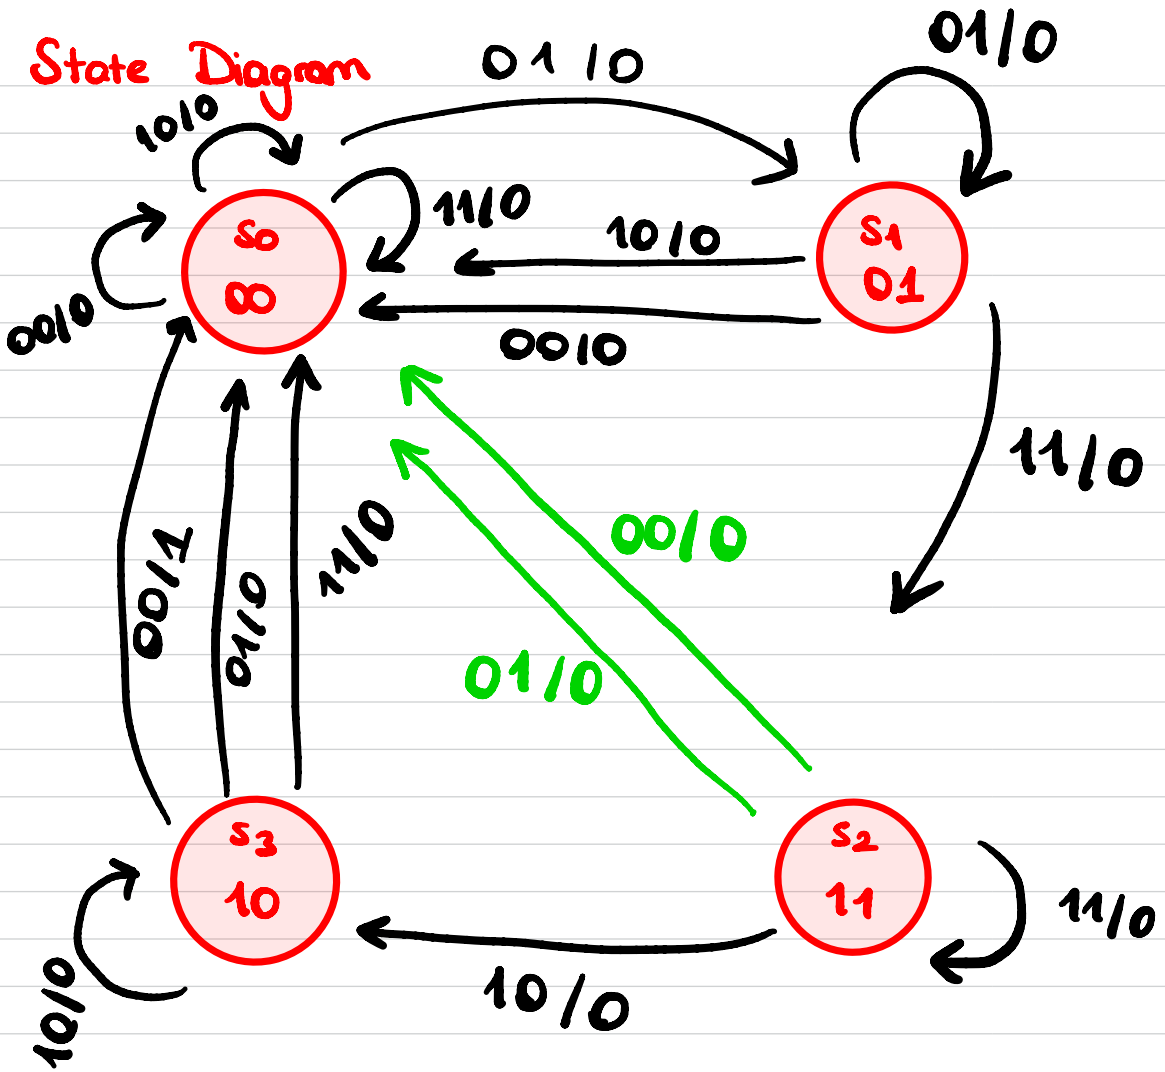 State Diagram
01/0
01/0
10/0
11/0
S0
00
10/0
S1
01
00/0
00/0
11/0
00/0
11/0
00/1
01/0
01/0
S3
10
S2
11
11/0
10/0
10/0